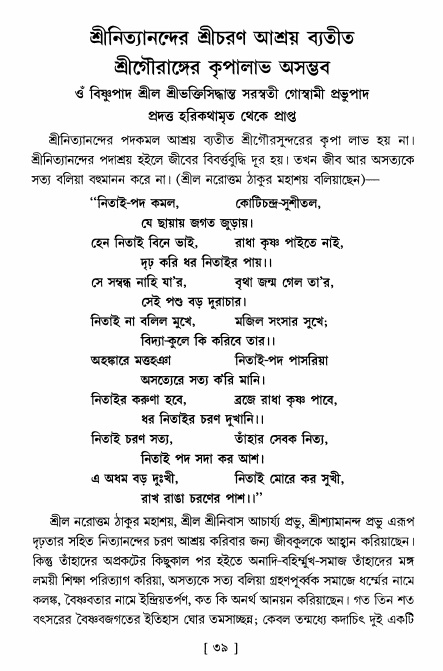 শ্রীনিত্যানন্দের শ্রীচরণ আশ্রয় ব্যতীত
শ্রীগৌরাঙ্গের কৃপালাভ অসম্ভব
ওঁ বিষ্ণুপাদ শ্রীল শ্রীভক্তিসিদ্ধান্ত সরস্বতী গোস্বামী প্রভুপাদ
প্রদত্ত হরিকথামৃত থেকে প্রাপ্ত
শ্রীনিত্যানন্দের পদকমল আশ্রয় ব্যতীত শ্রীগৌরসুন্দরের কৃপা লাভ হয় না।
শ্রীনিত্যানন্দের পদাশ্রয় হইলে জীবের বিবর্ত্তবুদ্ধি দূর হয়। তখন জীব আর অসত্যকে
সত্য বলিয়া বহুমানন করে না। (শ্রীল নরোত্তম ঠাকুর মহাশয় বলিয়াছেন)—
‘‘নিতাই-পদ কমল, কোটিচন্দ্র-সুশীতল,
যে ছায়ায় জগত জুড়ায়।
হেন নিতাই বিনে ভাই, রাধা কৃষ্ণ পাইতে নাই,
দৃঢ় করি ধর নিতাইর পায়।।
সে সম্বন্ধ নাহি যা'র, বৃথা জন্ম গেল তা'র,
সেই পশু বড় দুরাচার।
নিতাই না বলিল মুখে, মজিল সংসার সুখে;
বিদ্যা-কুলে কি করিবে তার।।
অহঙ্কারে মত্তহঞা নিতাই-পদ পাসরিয়া
অসত্যেরে সত্য ক'রি মানি।
নিতাইর করুণা হবে, ব্রজে রাধা কৃষ্ণ পাবে,
ধর নিতাইর চরণ দুখানি।।
নিতাই চরণ সত্য, তাঁহার সেবক নিত্য,
নিতাই পদ সদা কর আশ।
এ অধম বড় দুঃখী, নিতাই মোরে কর সুখী,
রাখ রাঙা চরণের পাশ।।’’
শ্রীল নরোত্তম ঠাকুর মহাশয়, শ্রীল শ্রীনিবাস আচার্য্য প্রভু, শ্রীশ্যামানন্দ প্রভু এরূপ
দৃঢ়তার সহিত নিত্যানন্দের চরণ আশ্রয় করিবার জন্য জীবকুলকে আহ্বান করিয়াছেন।
কিন্তু তাঁহাদের অপ্রকটের কিছুকাল পর হইতে অনাদি-বহির্ম্মুখ-সমাজ তাঁহাদের মঙ্গ
লময়ী শিক্ষা পরিত্যাগ করিয়া, অসত্যকে সত্য বলিয়া গ্রহণপূর্ব্বক সমাজে ধর্ম্মের নামে
কলঙ্ক, বৈষ্ণবতার নামে ইন্দ্রিয়তর্পণ, কত কি অনর্থ আনয়ন করিয়াছেন। গত তিন শত
বৎসরের বৈষ্ণবজগতের ইতিহাস ঘোর তমসাচ্ছন্ন; কেবল তন্মধ্যে কদাচিৎ দুই একটি
[ ৩৯ ]